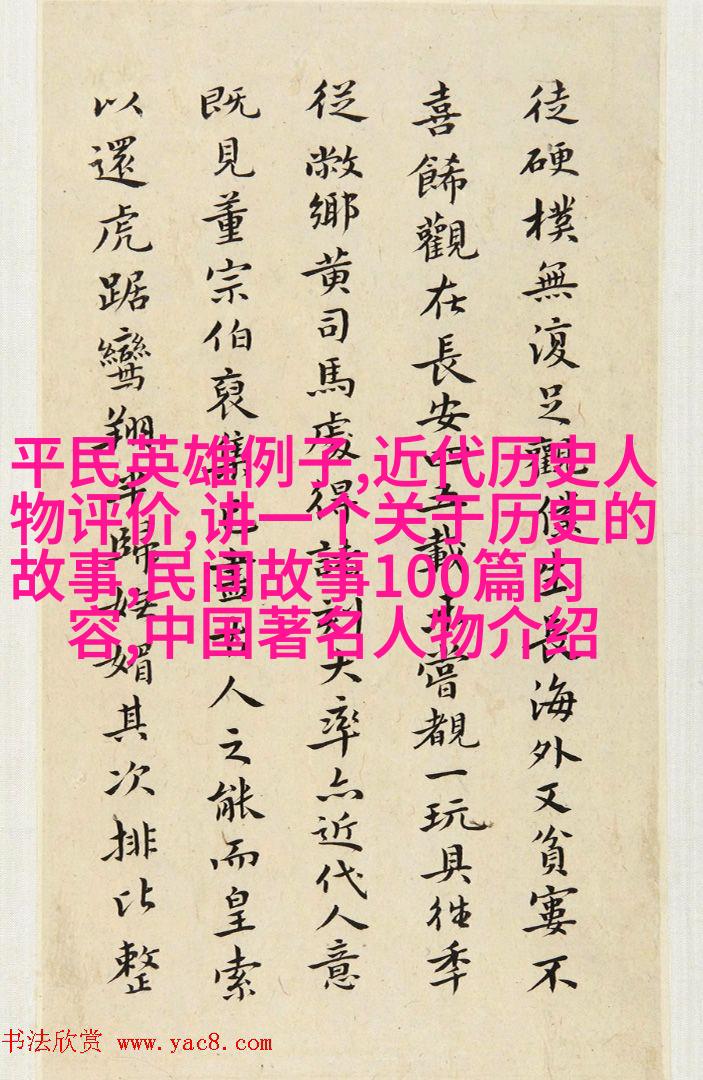 徒硬樸無復足觀僕生長海外又貧窶不
喜餙觀在長安四五載未嘗覩一玩具往季
從敝鄉黄司馬處得諸刻大率亦近代人意
既見董宗伯裒集已盡古人之能而皇索
以還虎踞鸞翔歸媚其次排比整
平民英雄例子,近代历史人
物评价,讲一个关于历史的
故事,民间故事100篇内
容,中国著名人物介绍
书法欣赏 www.yac8.com